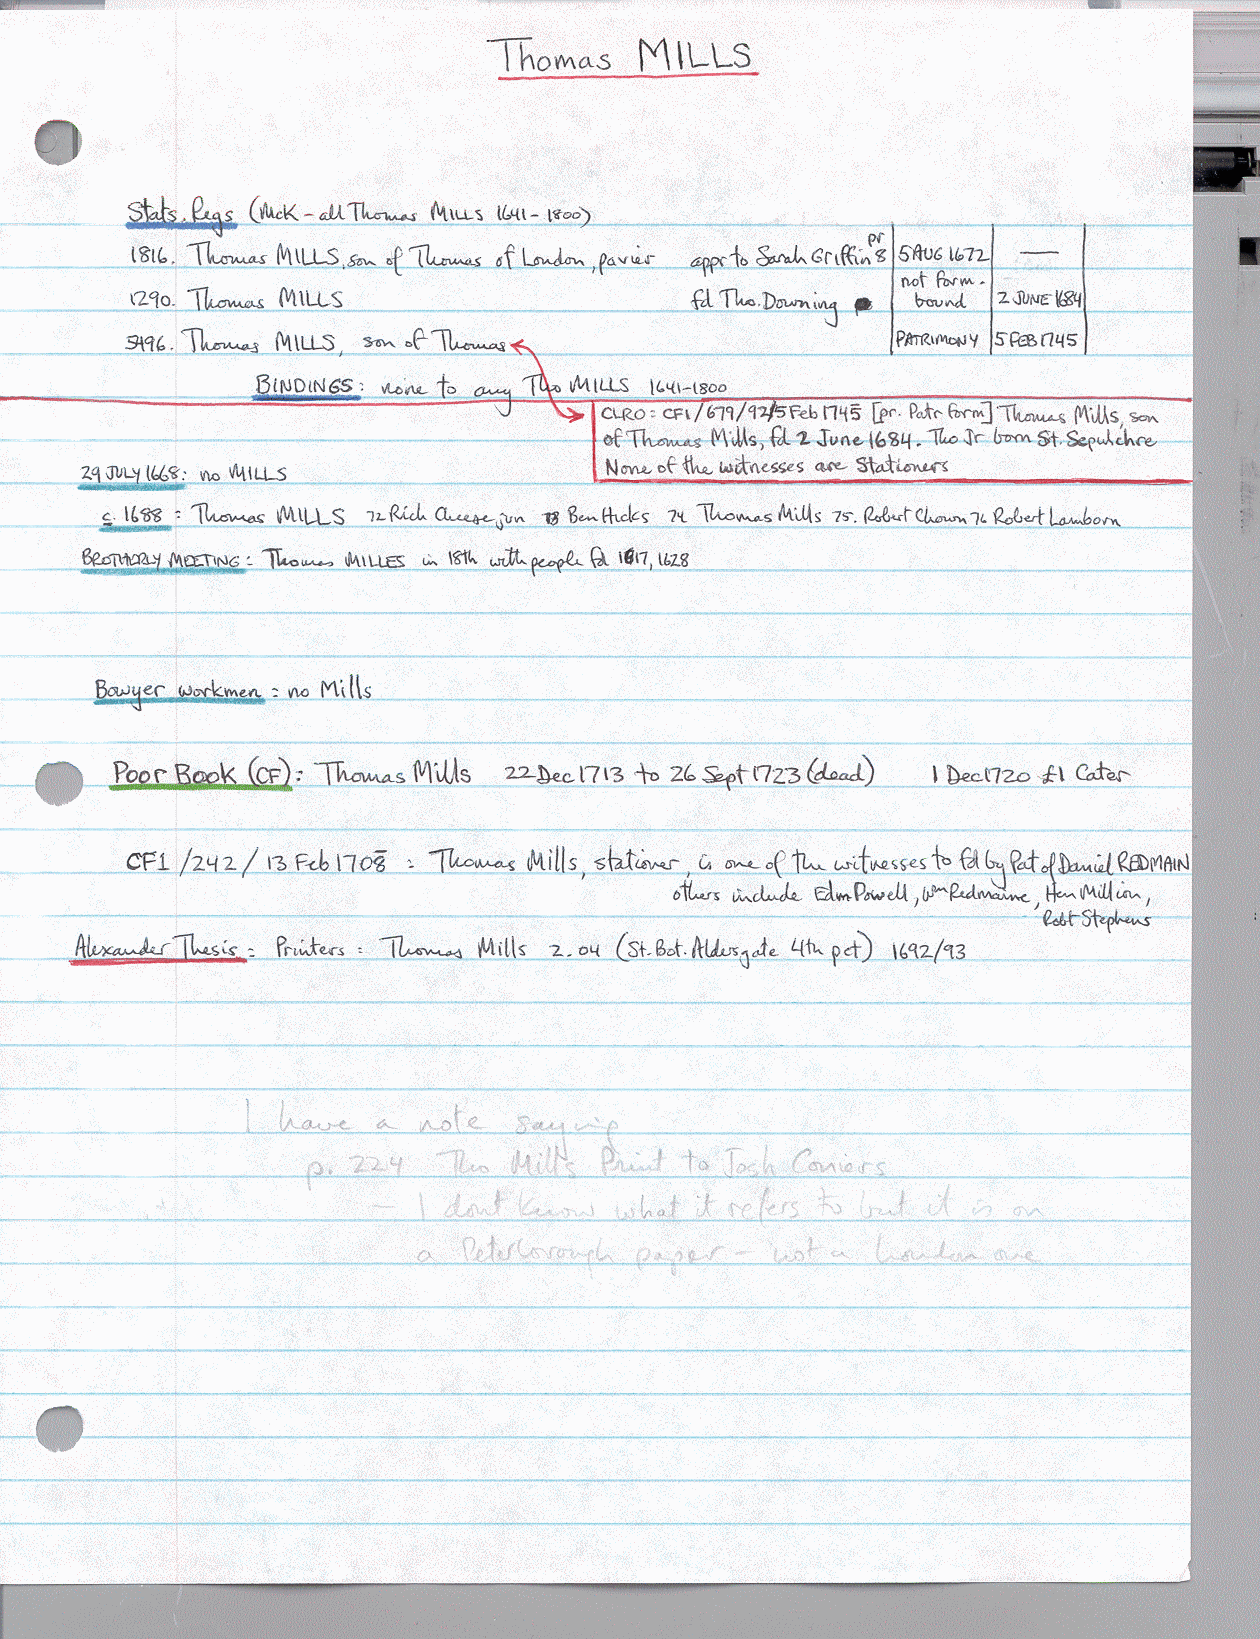 Thomas MILLS
Stats. Regs (McK - all Thomas MILLS 1641-1800)
1816. Thomas MILLS, son of Thomas of London, pavier appr to Sarah Griffin 8 pr 5 AUG 1672 —
1290. Thomas MILLS fd Tho. Downing not form. bound 2 JUNE 1684
5496. Thomas MILLS, son of Thomas PATRIMONY 5 FEB 1745
BINDINGS: none to any Tho MILLS 1641-1800
CLRO: CF1/679/92/5 Feb 1745 [pr. Patr form] Thomas Mills, son
of Thomas Mills, fd 2 June 1684. Tho Jr born St. Sepulchre
None of the witnesses are Stationers
29 JULY 1668: no MILLS
c. 1688: Thomas MILLS 72 Rich Cheese jun 73 Ben Hicks 74 Thomas Mills 75. Robert Chown 76 Robert Lamborn
BROTHERLY MEETING: Thomas MILLES in 18th with people fd 1617, 1628
Bowyer workmen: no Mills
Poor Book (CF): Thomas Mills 22 Dec 1713 to 26 Sept 1723 (dead) 1 Dec 1720 £1 Cater
CF1/242/13 Feb 1708: Thomas Mills, stationer, is one of the witnesses to fd by Pat of Daniel REDMAIN
others include Edm Powell, Wm Redmaine, Hen Million,
Robt Stephens
Alexander Thesis: Printers: Thomas Mills 2.04 (St. Bot. Aldersgate 4th pct) 1692/93
I have a note saying
p. 224 Tho Mills Print to Josh Coniers
- I dont know what it refers to but it is on
a Peterborough paper - not a London one